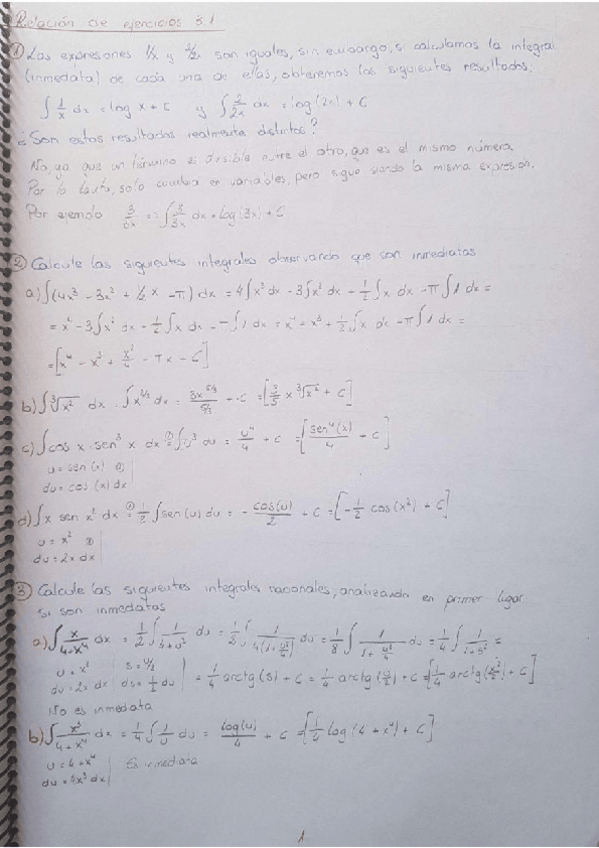 Relación de ejercicios 3.1
① Las expresiones 1/x y 2/2x son iguales, sin embargo, si calculamos la integral
(inmediata) de cada una de ellas, obtenemos los siguientes resultados.
∫ 1/x dx = log x + C y ∫ 2/2x dx = log(2x) + C
¿Son estos resultados realmente distintos?
No, ya que un término es divisible entre el otro, que es el mismo número.
Por lo tanto, solo cambia en variables, pero sigue siendo la misma expresión.
Por ejemplo ∫ 3/3x dx = log(3x) + C
② Calcule las siguientes integrales observando que son inmediatas
a) ∫(4x³ - 3x² + 1/2 x - π) dx = 4∫x³ dx - 3∫x² dx + 1/2 ∫x dx - π∫1 dx =
= x⁴ - 3∫x² dx + 1/2 ∫x dx - π∫1 dx = x⁴ - x³ + 1/2 ∫x dx - π∫1 dx =
= [x⁴ - x³ + x²/4 - πx + C]
b) ∫ ∛x² dx = ∫x^(2/3) dx = 3x^(5/3)/5 + C = [3/5 x ∛x² + C]
c) ∫cos x · sen³ x dx ①= ∫u³ du = u⁴/4 + C = [sen⁴(x)/4 + C]
u = sen(x) ①
du = cos(x) dx
d) ∫x sen x² dx ①= 1/2 ∫sen(u) du = - cos(u)/2 + C = [-1/2 cos(x²) + C]
u = x² ①
du = 2x dx
③ Calcule las siguientes integrales racionales, analizando en primer lugar
si son inmediatas
a) ∫ x/(4+x⁴) dx = 1/2 ∫ 1/(4+u²) du = 1/2 ∫ 1/(4(1+u²/4)) du = 1/8 ∫ 1/(1+u²/4) du = 1/4 ∫ 1/(1+s²) =
u = x² | s = u/2
du = 2x dx | ds = 1/2 du | = 1/4 arctg(s) + C = 1/4 arctg(u/2) + C = [1/4 arctg(x²/2) + C]
No es inmediata
b) ∫ x³/(4+x⁴) dx = 1/4 ∫ 1/u du = log(u)/4 + C = [1/4 log(4+x⁴) + C]
u = 4+x⁴ | Es inmediata
du = 4x³ dx
1